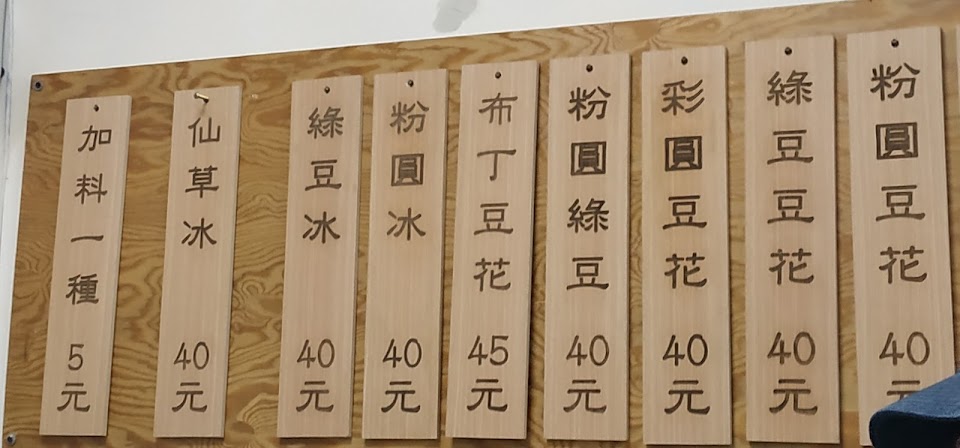 粉圓豆花 40元
綠豆豆花 40元
彩圓豆花 40元
粉圓綠豆 40元
布丁豆花 45元
粉圓冰 40元
綠豆冰 40元
仙草冰 40元
加料一種 5元